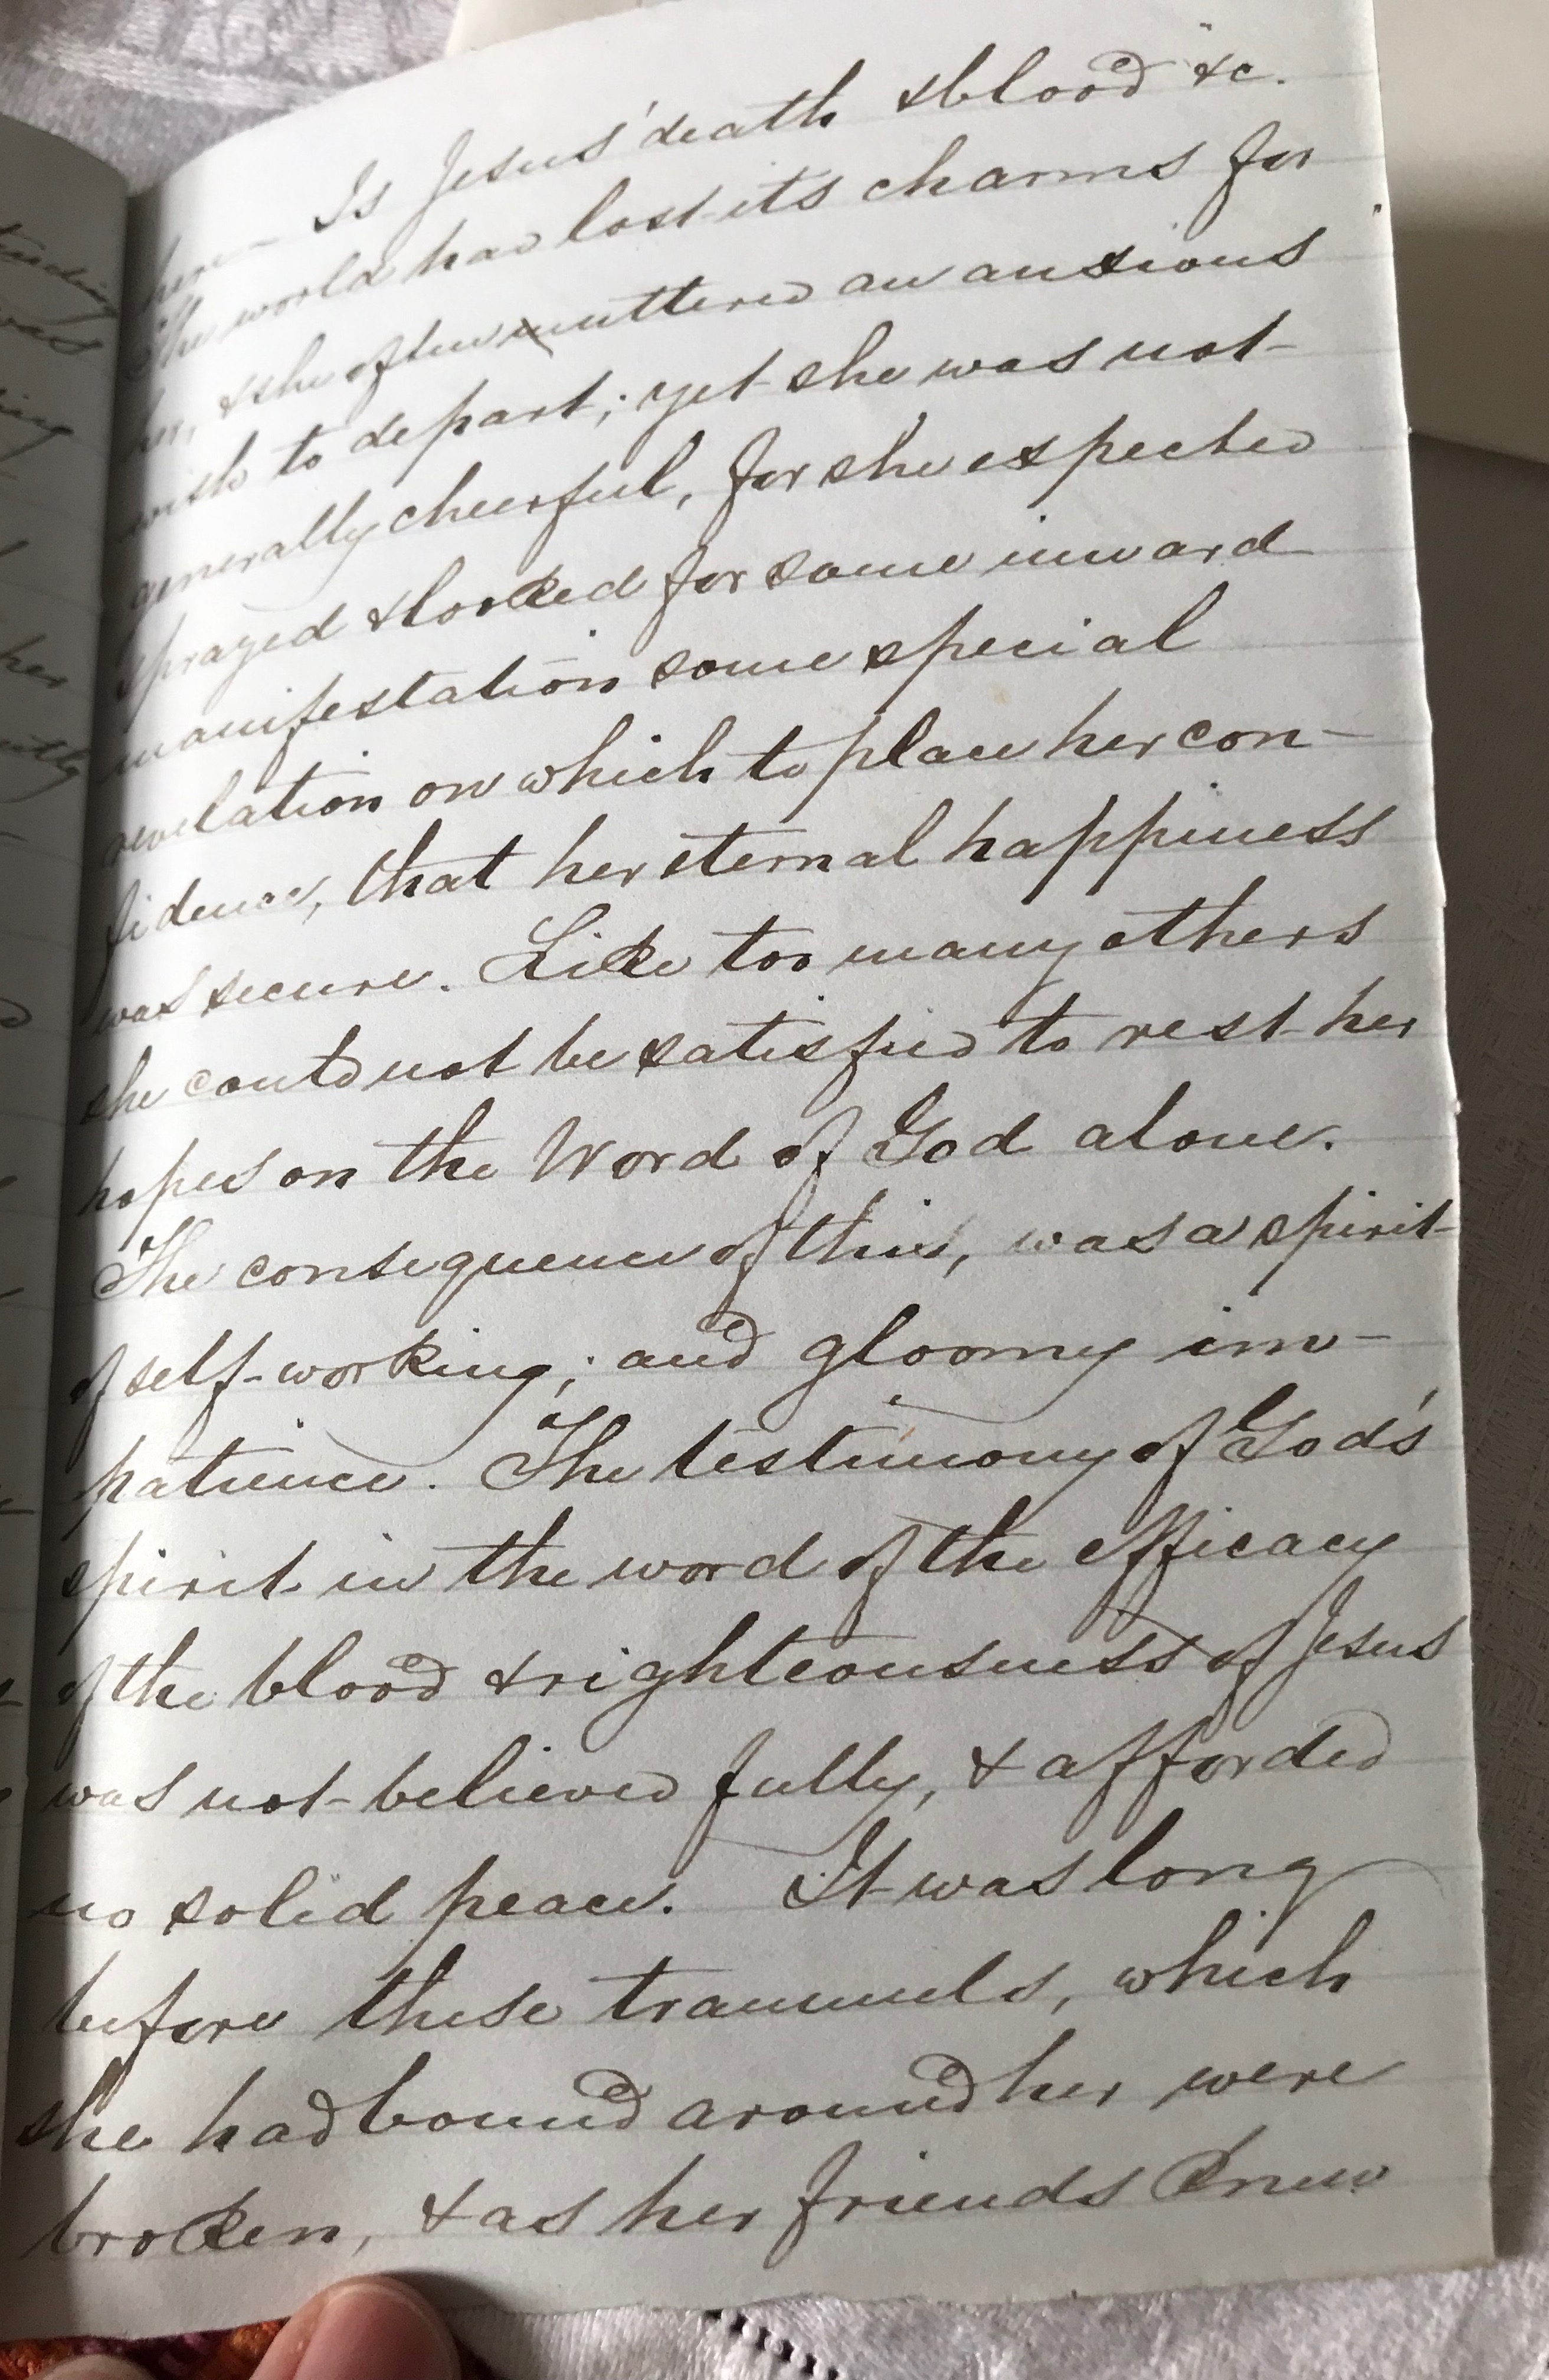 her — Is Jesus' death & blood &c.
The world had lost its charms for
her, & she often uttered an anxious
wish to depart; yet she was not
generally cheerful, for she expected
& prayed & looked for some inward
manifestation some special
revelation on which to place her con-
fidence, that her eternal happiness
was secure. Like too many others
she could not be satisfied to rest her
hopes on the Word of God alone.
The consequence of this, was a spirit
of self-working; and gloomy im-
patience. The testimony of God's
spirit in the word of the efficacy
of the blood & righteousness of Jesus
was not believed fully, & afforded
no solid peace. It was long
before these trammels, which
she had bound around her were
broken, & as her friends knew